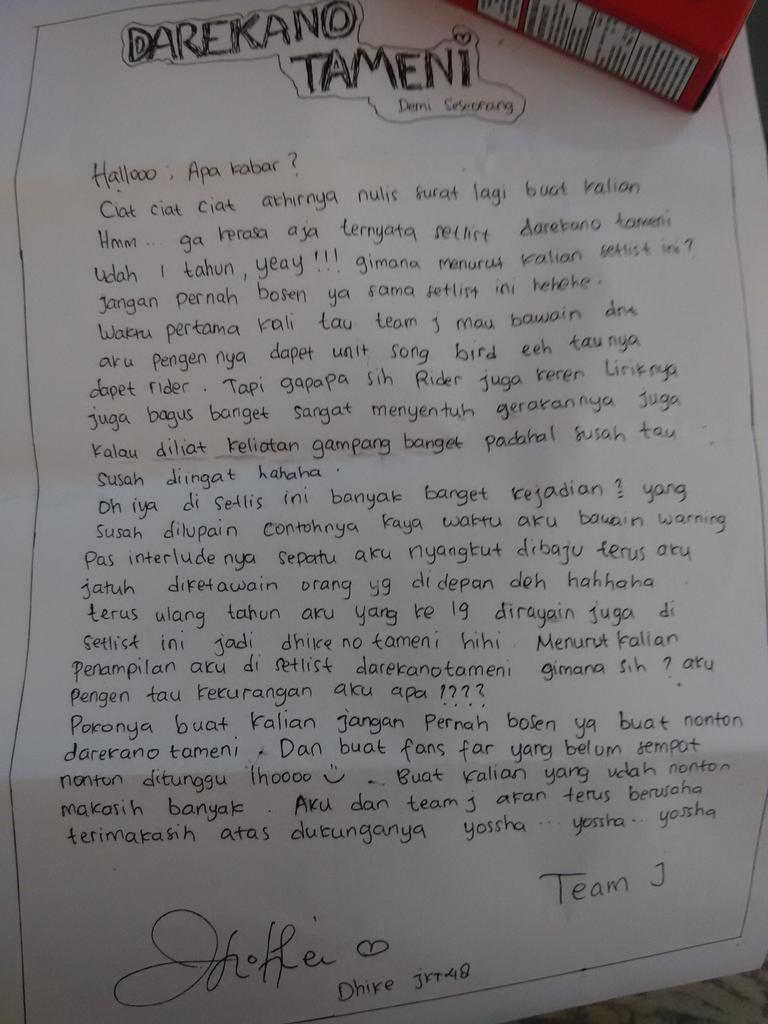 DAREKANO
TAMENI
Demi Seseorang
Hallooo, Apa kabar?
Ciat ciat ciat akhirnya nulis surat lagi buat kalian
Hmm... ga kerasa aja ternyata setlist darekano tameni
udah 1 tahun, yeay!!! gimana menurut kalian setlist ini?
Jangan pernah bosen ya sama setlist ini hehehe.
Waktu pertama kali tau team j mau bawain dnt
aku pengen nya dapet unit song bird eeh taunya
dapet rider. Tapi gapapa sih Rider juga keren Liriknya
juga bagus banget sangat menyentuh gerakannya juga
kalau diliat keliatan gampang banget padahal susah tau
susah diingat hahaha.
Oh iya di setlis ini banyak banget kejadian2 yang
susah dilupain contohnya kaya waktu aku bawain warning
Pas interlude nya sepatu aku nyangkut dibaju terus aku
jatuh diketawain orang yg di depan deh hahhaha
terus ulang tahun aku yang ke 19 dirayain juga di
setlist ini jadi dhike no tameni hihi. Menurut kalian
penampilan aku di setlist darekanotameni gimana sih? aku
pengen tau kekurangan aku apa!???
Pokonya buat kalian jangan pernah bosen ya buat nonton
darekano tameni. Dan buat fans far yang belum sempat
nonton ditunggu lhoooo. Buat kalian yang udah nonton
makasih banyak. Aku dan team j akan terus berusaha
terimakasih atas dukunganya yossha... yossha... yossha
Team J
Dhike jkt48